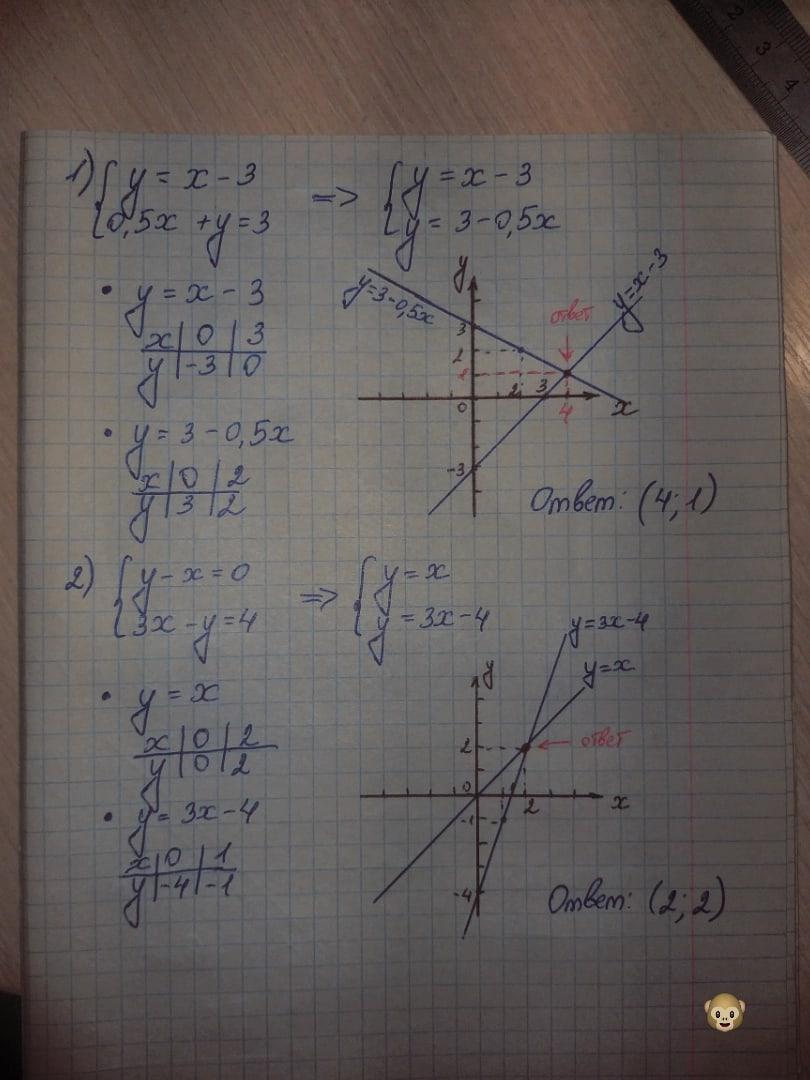 2 3 4
1) { y = x - 3 => { y = x - 3
0,5x + y = 3 y = 3 - 0,5x
• y = x - 3
x | 0 | 3
y | -3 | 0
• y = 3 - 0,5x
x | 0 | 2
y | 3 | 2
y
y=3-0,5x
y=x-3
ответ
3
2
1
0
2 3
4
x
-3
Ответ: (4; 1)
2) { y - x = 0 => { y = x
3x - y = 4 y = 3x - 4
• y = x
x | 0 | 2
y | 0 | 2
• y = 3x - 4
x | 0 | 1
y | -4 | -1
y=3x-4
y=x
y
2
ответ
0
2
x
-1
-4
Ответ: (2; 2)